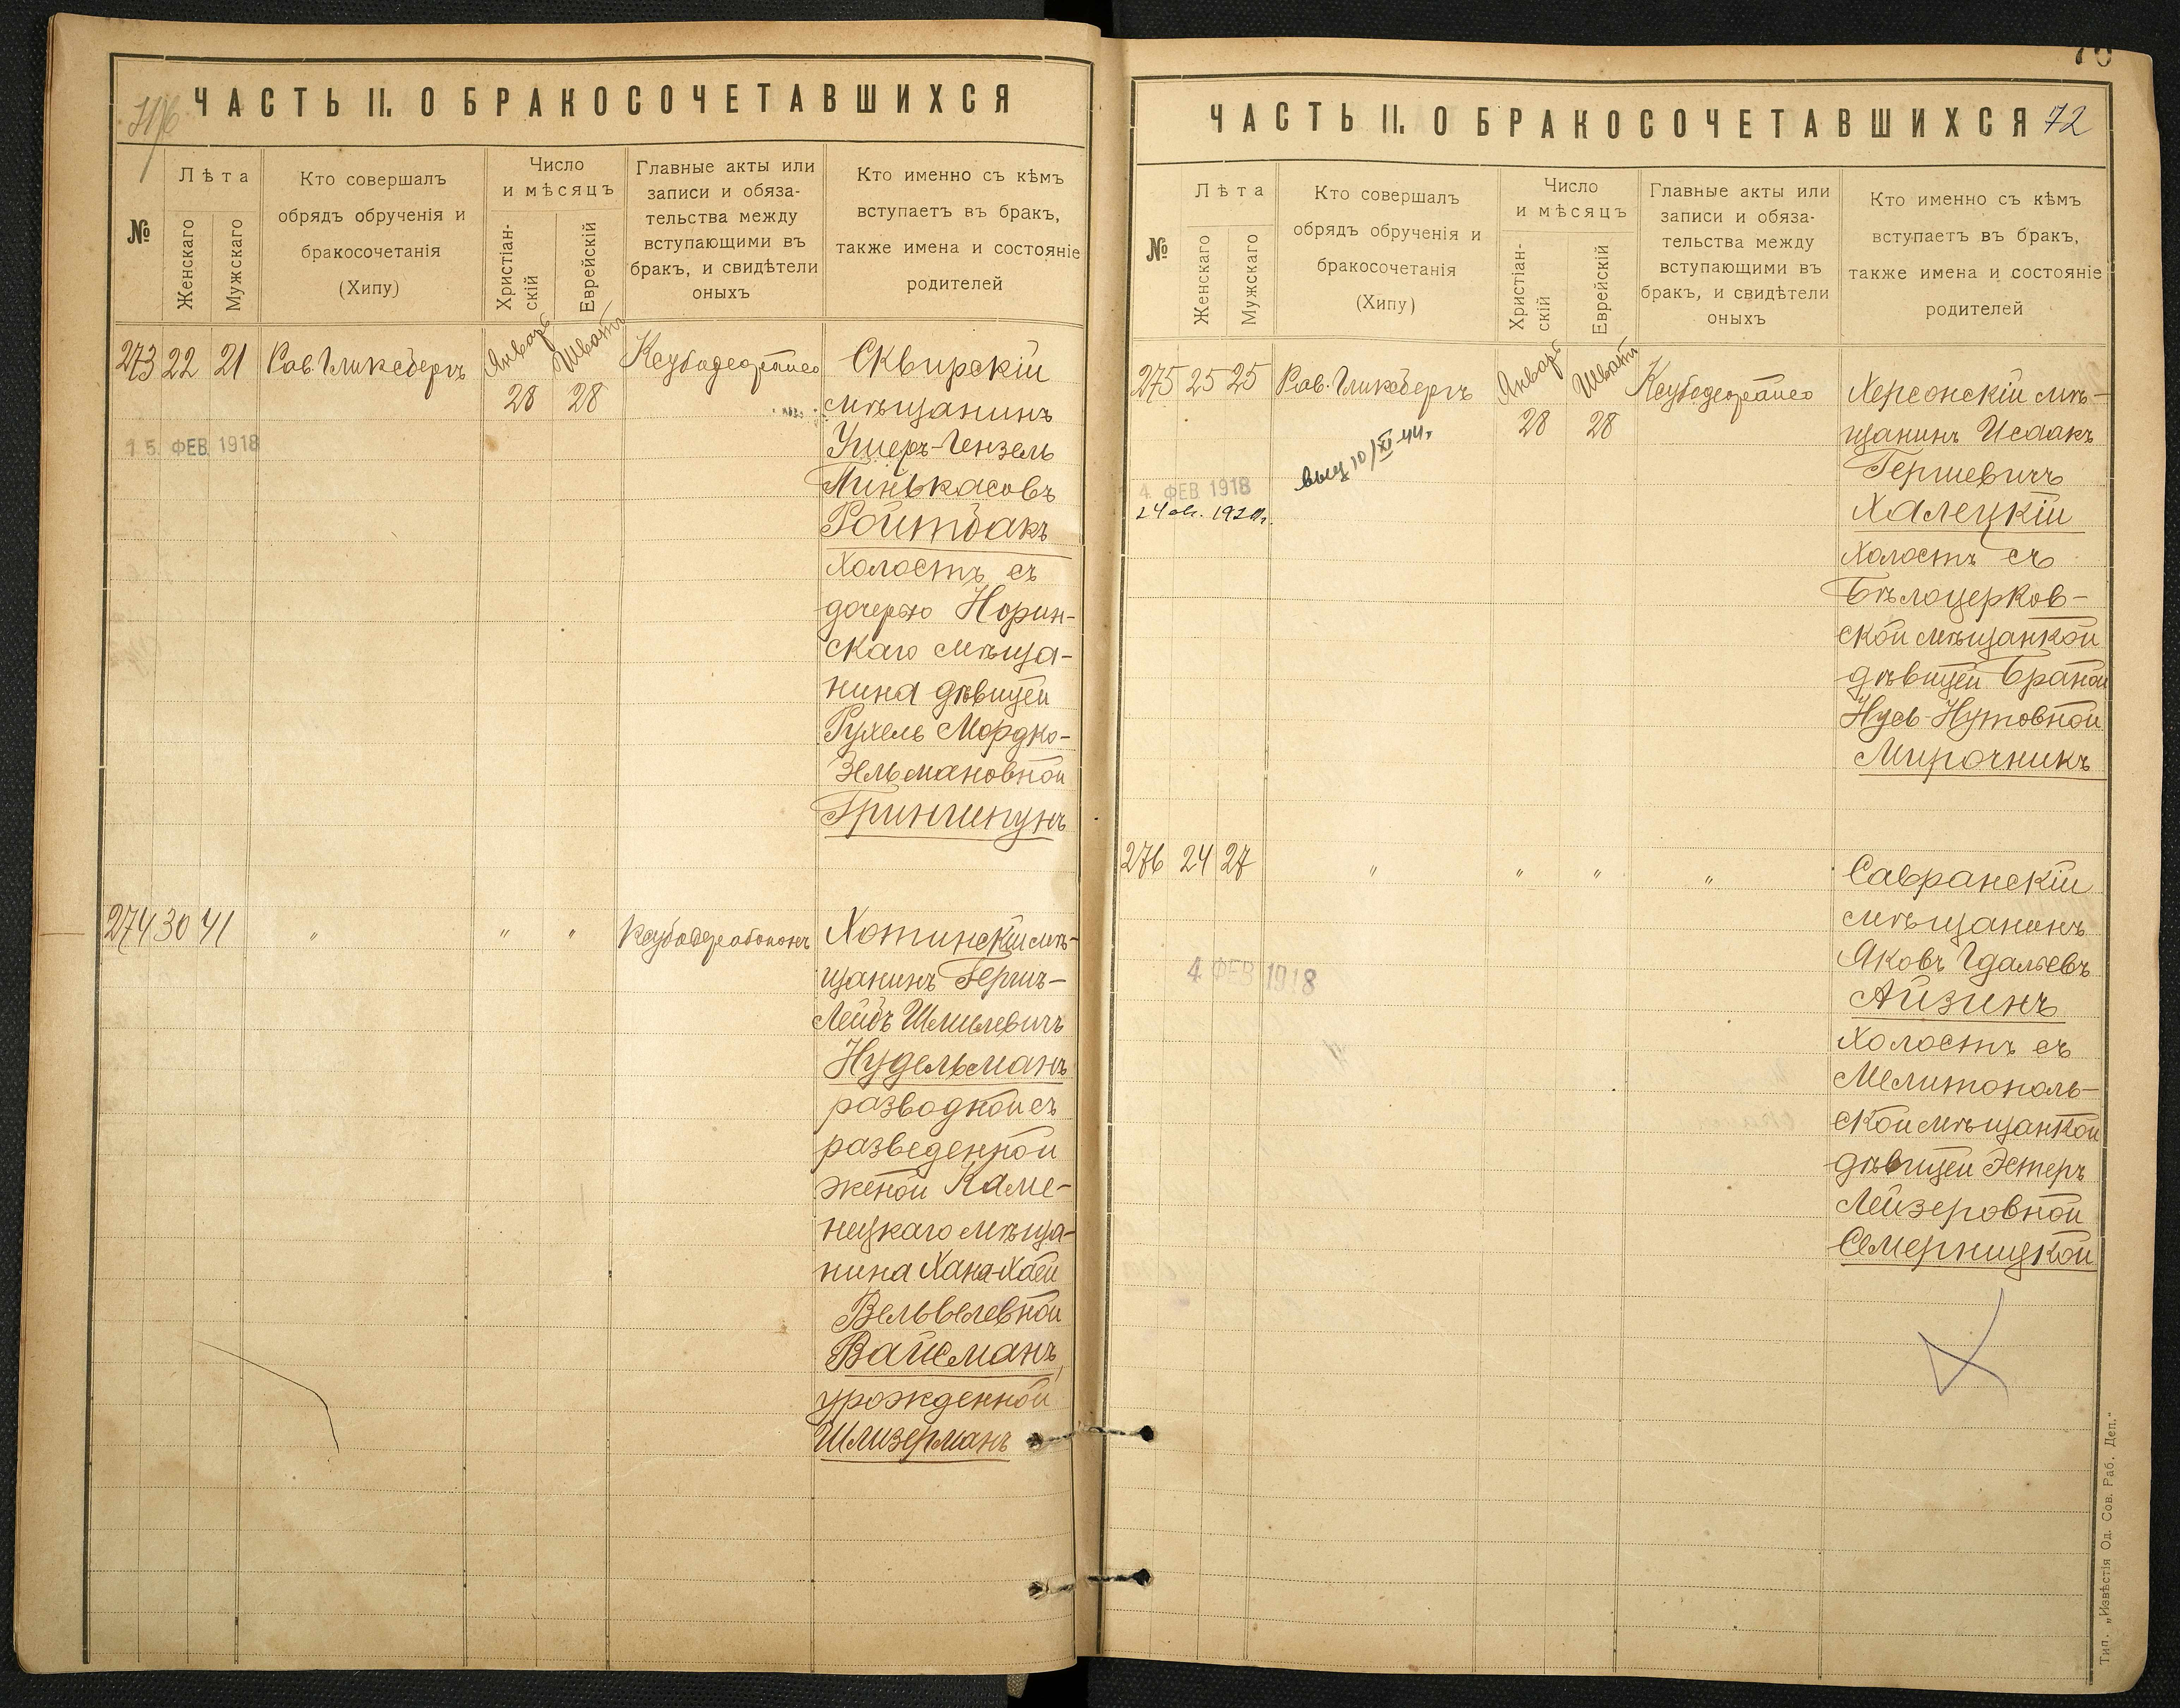 ЧАСТЬ II. О БРАКОСОЧЕТАВШИХСЯ
№
Лѣта
Женскаго
Мужскаго
Кто совершалъ
обрядъ обрученія и
бракосочетанія
(Хипу)
Число
и мѣсяцъ
Христіан-
скій
Еврейскій
Главные акты или
записи и обяза-
тельства между
вступающими въ
бракъ, и свидѣтели
оныхъ
Кто именно съ кѣмъ
вступаетъ въ бракъ,
также имена и состояніе
родителей
273 22 21 Рав. Гликсбергъ Январь 28 Шватъ 28
15 ФЕВ 1918
Сквирскій
мѣщанинъ
Ушеръ-Гензель
Пинькасовъ
Ройтбакъ
холостъ съ
дочерью Норин-
скаго мѣща-
нина дѣвицей
Рухель Мордко-
Зельмановной
Гриншпунъ
274 30 41 " " "
Хотинскій мѣ-
щанинъ Гершъ-
Лейбъ Шмилевичъ
Нудельманъ
разводной съ
разведенной
женой Каме-
нецкаго мѣща-
нина Хана-Хаей
Вельвелевной
Вайсманъ,
урожденной
Шлизерманъ
ЧАСТЬ II. О БРАКОСОЧЕТАВШИХСЯ 72
№
Лѣта
Женскаго
Мужскаго
Кто совершалъ
обрядъ обрученія и
бракосочетанія
(Хипу)
Число
и мѣсяцъ
Христіан-
скій
Еврейскій
Главные акты или
записи и обяза-
тельства между
вступающими въ
бракъ, и свидѣтели
оныхъ
Кто именно съ кѣмъ
вступаетъ въ бракъ,
также имена и состояніе
родителей
275 25 25 Рав. Гликсбергъ Январь 28 Шватъ 28
4 ФЕВ 1918
10/XI-44г.
Херсонскій мѣ-
щанинъ Исаакъ
Гершевичъ
Халецкій
холостъ съ
Бѣлоцерков-
ской мѣщанкой
дѣвицей Браной
Нусь-Нутовной
Мирочникъ
276 24 27 " " " "
4 ФЕВ 1918
Савранскій
мѣщанинъ
Яковъ Гдальевъ
Айзинъ
холостъ съ
Мелитополь-
ской мѣщанкой
дѣвицей Эстеръ
Лейзеровной
Семерницкой
Тип. „Извѣстія Од. Сов. Раб. Деп."